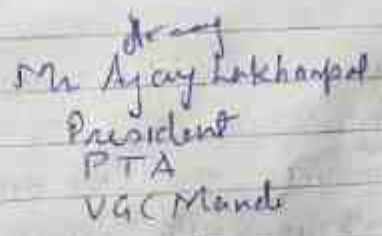 Mr Ajay Lakhanpal
President
PTA
VGC Mandi